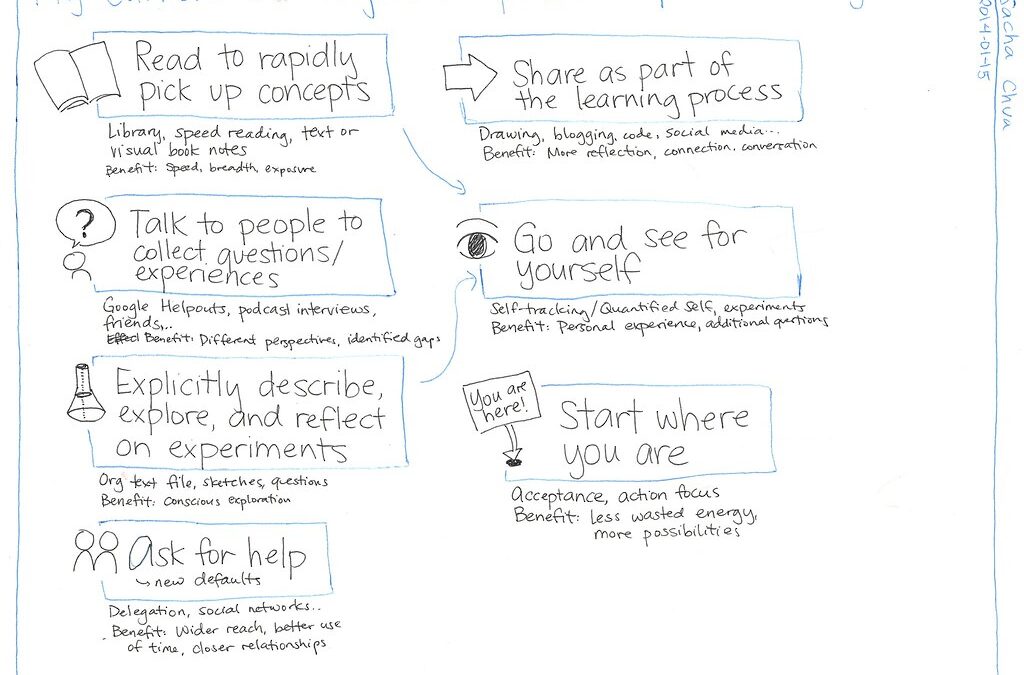 Read to rapidly
pick up concepts
Library, speed reading, text or
visual book notes
Benefit: Speed, breadth, exposure
?
Talk to people to
collect questions/
experiences
Google Helpouts, podcast interviews,
friends...
Effect Benefit: Different perspectives, identified gaps
Explicitly describe,
explore, and reflect
on experiments
Org text file, sketches, questions
Benefit: Conscious exploration
Ask for help
new defaults
Delegation, social networks...
Benefit: Wider reach, better use
of time, closer relationships
Share as part of
the learning process
Drawing, blogging, code, social media...
Benefit: More reflection, connection, conversation
Go and see for
yourself
Self-tracking/Quantified Self, experiments
Benefit: Personal experience, additional questions
You are
here!
Start where
you are
Acceptance, action focus
Benefit: Less wasted energy,
more possibilities
Sacha Chua
2014-01-15